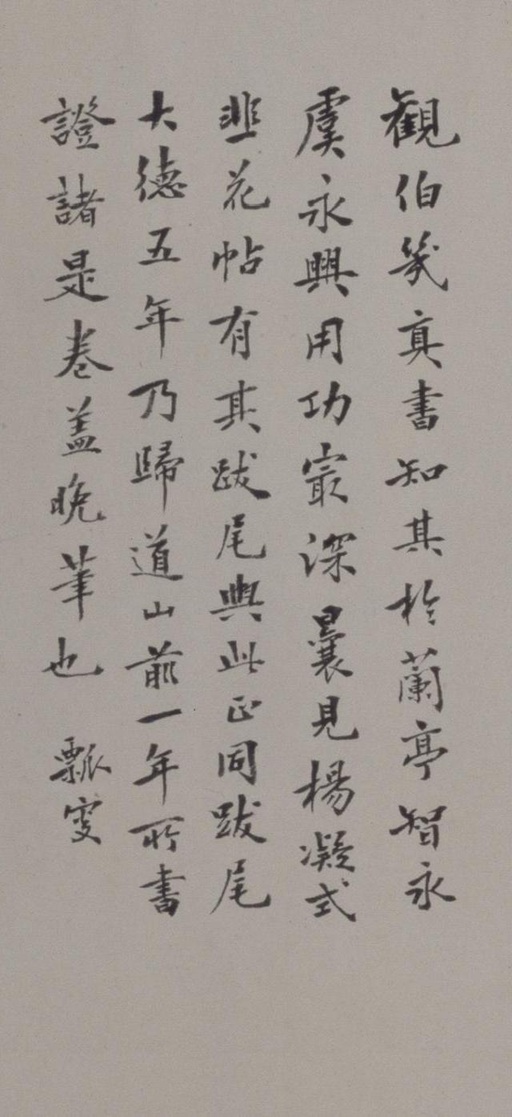 観伯幾真書知其於蘭亭智永
虞永興用功㝡深曩見楊凝式
韭花帖有其跋尾與此正同跋尾
大德五年乃歸道山前一年所書
證諸是卷蓋晚筆也 瓢叟